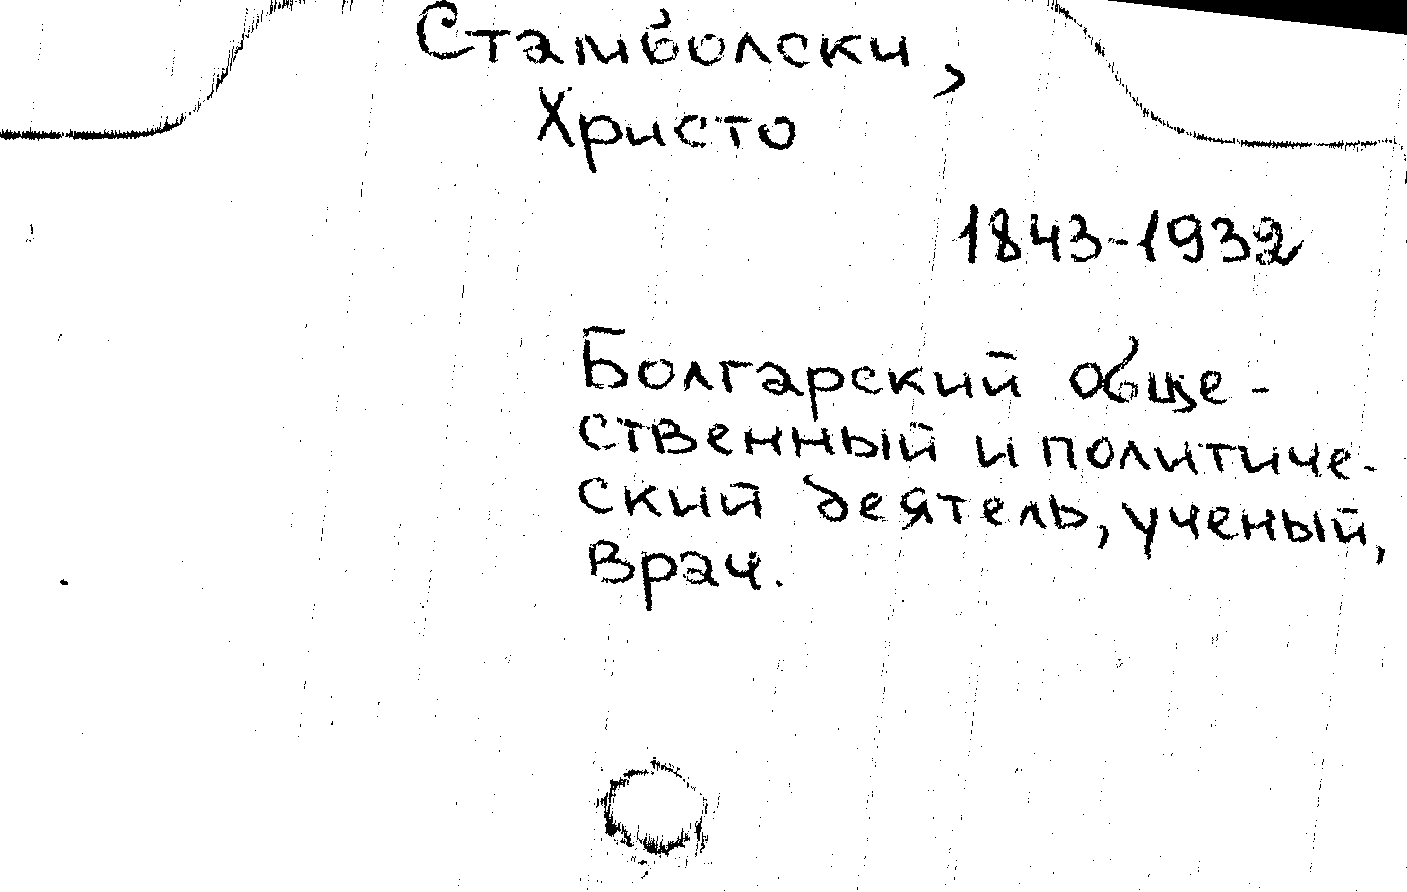 Стамболски,
Христо
1843-1932
Болгарский обще-
ственный и политиче-
ский деятель, ученый,
врач.